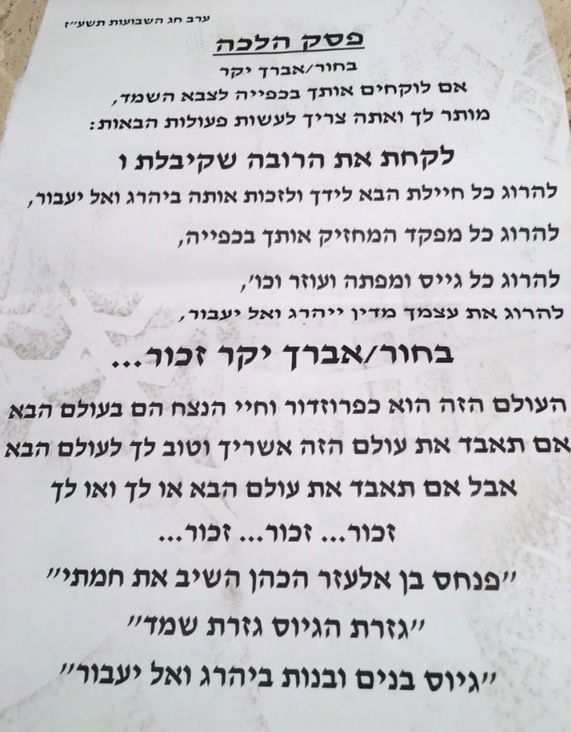 ערב חג השבועות תשע״ז
פסק הלכה
בחור/אברך יקר
אם לוקחים אותך בכפייה לצבא השמד,
מותר לך ואתה צריך לעשות פעולות הבאות:
לקחת את הרובה שקיבלת ו
להרוג כל חיילת הבא לידך ולזכות אותה ביהרג ואל יעבור,
להרוג כל מפקד המחזיק אותך בכפייה,
להרוג כל גייס ומפתה ועוזר וכו',
להרוג את עצמך מדין ייהרג ואל יעבור,
בחור/אברך יקר זכור...
העולם הזה הוא כפרוזדור וחיי הנצח הם בעולם הבא
אם תאבד את עולם הזה אשריך וטוב לך לעולם הבא
אבל אם תאבד את עולם הבא או לך ואו לך
זכור... זכור... זכור...
״פנחס בן אלעזר הכהן השיב את חמתי״
״גזרת הגיוס גזרת שמד״
״גיוס בנים ובנות ביהרג ואל יעבור״